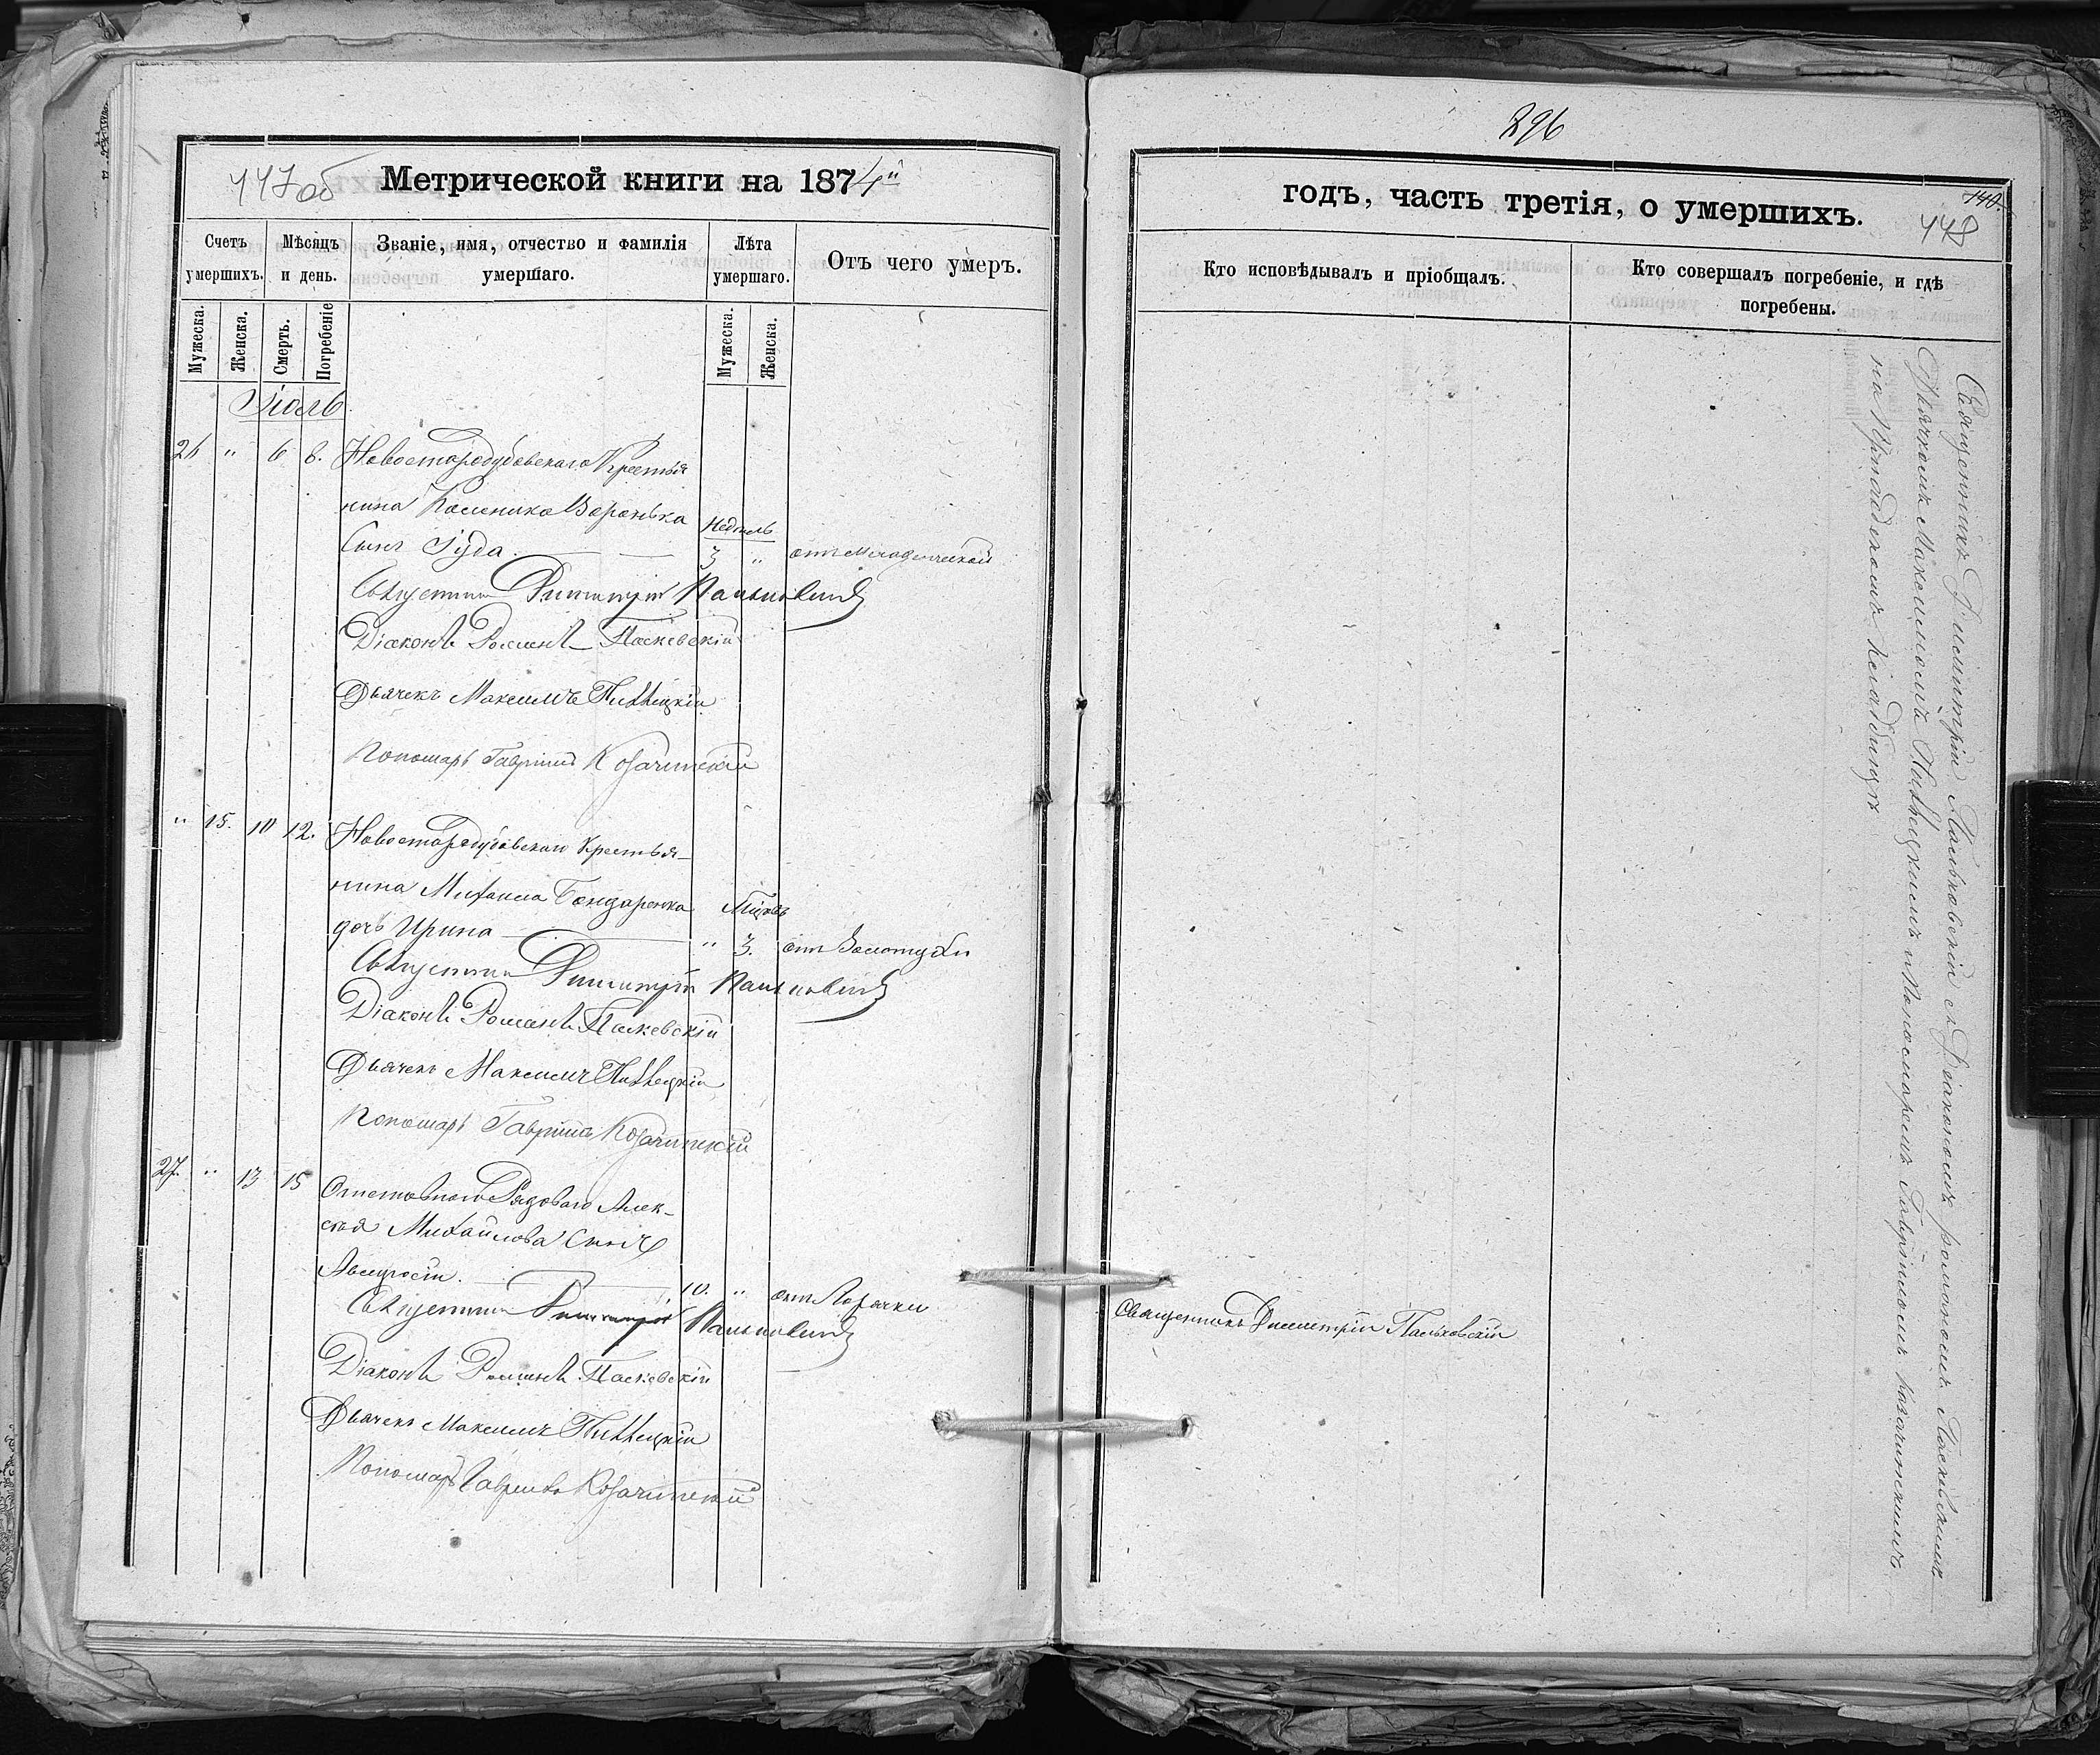 117 об
Метрической книги на 1874й
Счетъ умершихъ.
Мѣсяцъ и день.
Званіе, имя, отчество и фамилія умершаго.
Лѣта умершаго.
Отъ чего умеръ.
Мужеска.
Женска.
Смерть.
Погребеніе
Мужеска.
Женска.
Іюль
26 " 6 8. Новостародубовскаго Крестья
нина Воронька недѣль
Сынъ Іуда 3 " отъ младенческой
Священникъ Димитрій Пальковскій
Діаконъ Романъ Паскевскій
Дьячекъ Максимъ
Пономарь Гавріилъ Козачинскій
" 15. 10 12. Новостародубовскаго Крестья-
нина Михаила Бондаренка Мцовъ
дочь Ирина " 3. отъ Золотухи
Священникъ Димитрій Пальковскій
Діаконъ Романъ Паскевскій
Дьячекъ Максимъ
Пономарь Гавріилъ Козачинскій
27. " 13 15 Отставнаго Рядоваго Алек-
сѣя Михайлова Сынъ
10. " отъ Горячки
Священникъ Димитрій Пальковскій
Діаконъ Романъ Паскевскій
Дьячекъ Максимъ
Пономарь Гавріилъ Козачинскій
296
140.
118
годъ, часть третія, о умершихъ.
Кто исповѣдывалъ и пріобщалъ.
Кто совершалъ погребеніе, и гдѣ погребены.
Священникъ Димитрій Пальковскій
Священникъ Димитрій Пальковскій съ Діакономъ Романомъ Паскевскимъ
Дьячкомъ Максимомъ и Пономаремъ Гавріиломъ Козачинскимъ
на Приходскомъ кладбищѣ